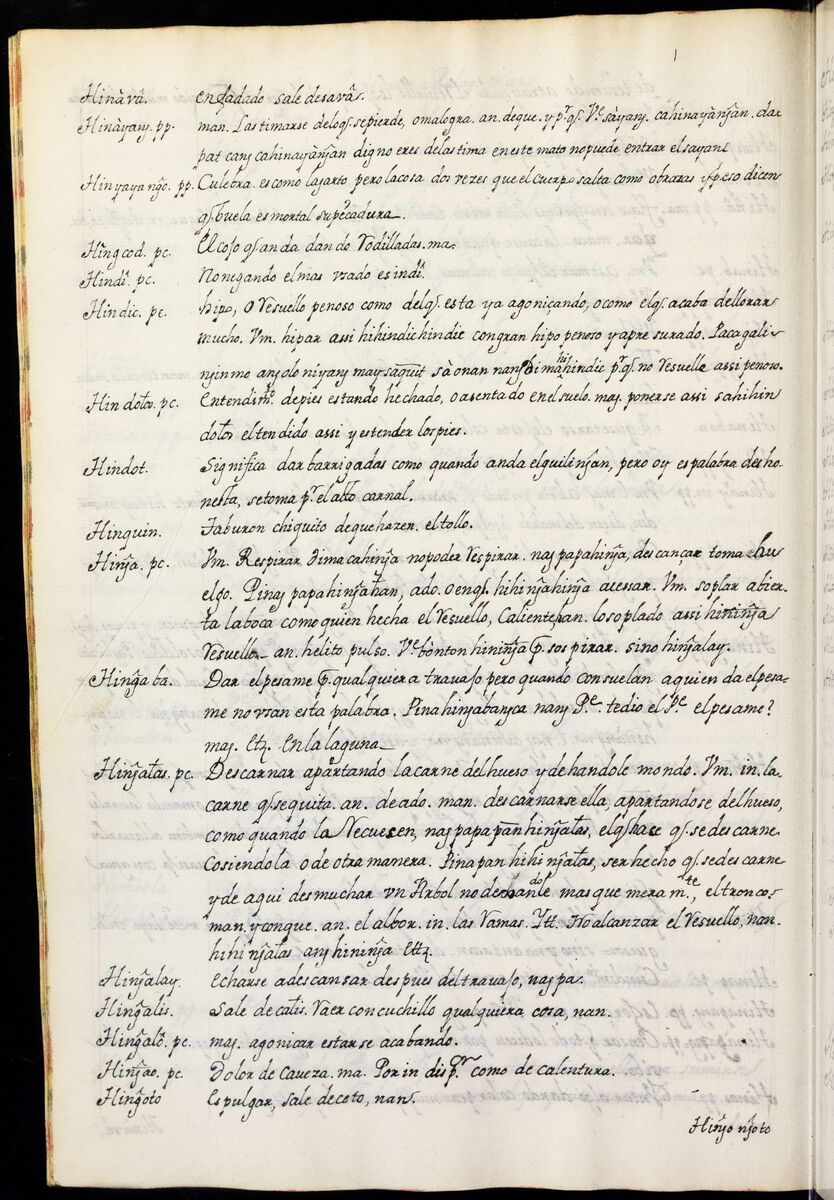 Hinàvâ. enfadado sale desavâ.
Hinàyang. pp. man. Lastimarse deloq̃. sepierde, omalogra. an. deque. y pr̃. q̃. Ve. sàyang. cahinayàng̃an. da
pat cang cahinayàng̃an digno eres delastima en este mato nopuede entrar el sayang.
Hinyayang̃o. pp. Culebra. es como lagarto pero lacosa dos vezes que el cuerpo salta como obrazas y peso dicen
q̃. buela es mortal supicadura.
Hing̃cod. pc. El cojo q̃. anda dando Rodilladas. ma.
Hindî. pc. No negando el mas vzado es indî.
Hindic. pc. hipo, o Resuello penoso como del q̃. esta ya agoniçando, o como el q̃. acaba dellorar
mucho. Vm. hipar assi hihindichindic con gran hipo penoso y apresurado. Pacagali
ng̃inmo ang olo niyang may saquit sà onan nang di mahihindic pr̃. q̃. no Resuelle assi penoso.
Hindoton. pc. Entendimto. depies estando hechado, o asentado en el suelo. mag. ponerse assi sahihin
doton el tendido assi y estender los pies.
Hindot. Significa dar barrigadas como quando anda elguiling̃an, pero oy es palabra desho
nesta, setoma pr̃. el atto carnal.
Hinquin. Taburon chiquito de que hazen. el tollo.
Hing̃a. pc. Vm. Respirar dima cahing̃a nopoder Respirar. nagpapahing̃a, descançar tomar hu
elgo. Pinag papahing̃ahan, ado. o enq̃. hihing̃ahing̃a acessar. Vm. soplar abier
ta la boca como quien hecha el Resuello, Calientepan. lo soplado assi hining̃a
Resuello an. helito pulso. Ve. bònton hining̃a p. sospirar. sino hing̃alay.
Hing̃aba. Dar el pesame p. qualquiera travajo pero quando consuelan a quien da el pesa-
me no vsan esta palabra. Pinahing̃abangca nang Pe. tedio el Pe. el pesame?
mag. Etz. en la laguna
Hing̃atas. pc. Descarnar apartando lacarne del hueso y dehandole mondo. Vm. in. la
carne q̃. sequita. an. de ado. man. descarnarse ella, apartandose del hueso,
como quando la Recuesen, nag papapan hing̃atas, el q̃. hace q̃. se descarne
Cosiendola o de otra manera. Pinapan hihing̃atas, ser hecho q̃. se descarne
y de aqui desmuchar vn Arbol no dehandole mas que mera mte, el tronco.
man. y conque. an. el albor. in. las Ramas. Ytt. No alcanzar el Resuello, nan
hihing̃atas ang hining̃a Etz.
Hing̃alay. Echarse a descansar despues del travajo, nagpa.
Hing̃alis. sale de calis. Raer con cuchillo qualquiera cosa, nan.
Hing̃alô. pc. mag. agonicar estarse acabando.
Hing̃ao. pc. Dolor de Caveza. ma. Por in disp.on como de calentura.
Hing̃oto Espulgar, sale de coto, nan.
Hing̃o ng̃oto